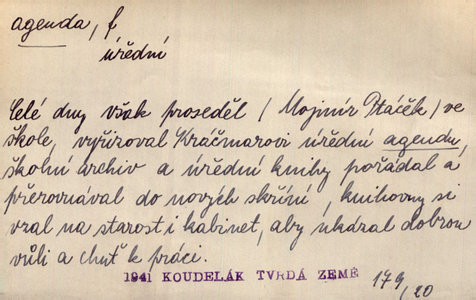 agenda, f
úřední
Celé dny však proseděl / Mojmír Ptáček / ve
škole, vyřizoval Kračmarovi úřední agendu,
školní archiv a úřední knihy pořádal a
přerovnával do nových skříní, knihovny si
vzal na starost i kabinet, aby ukázal dobrou
vůli a chuť k práci.
1941 KOUDELÁK TVRDÁ ZEMĚ 179/20